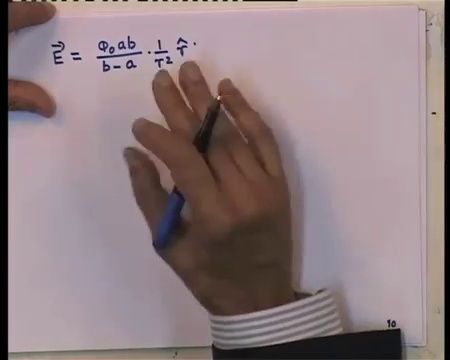 E⃗ = Φ₀ab / b-a · 1/r² r̂ .
90